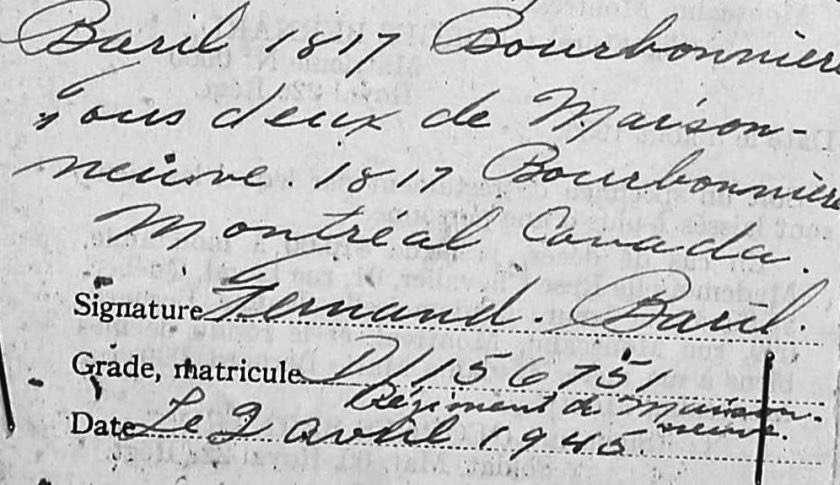 Baril 1817 Bourbonnière
Tous deux de Maison-
neuve. 1817 Bourbonnière
Montréal Canada.
Signature Fernand. Baril.
Grade, matricule D/156751
Régiment de Maison-
neuve.
Date Le 2 avril 1945.